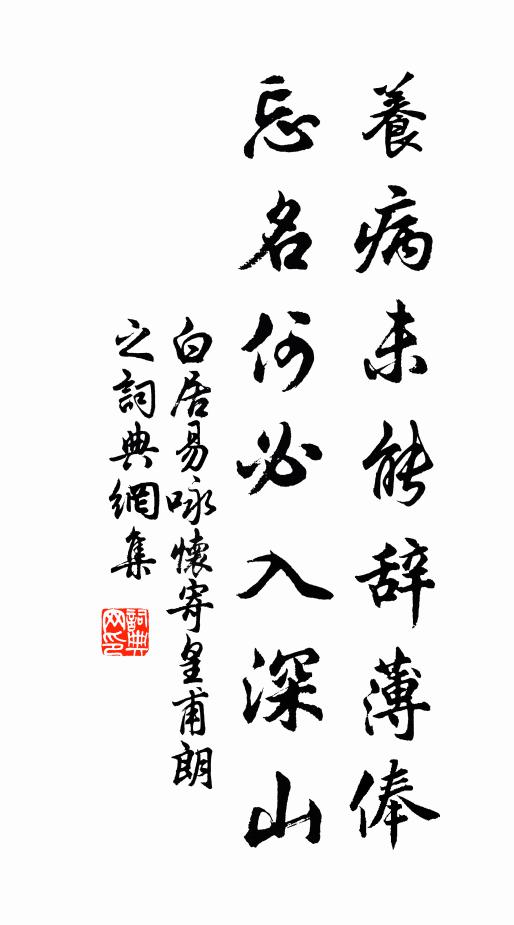 養病未能辞薄俸
忘名何必入深山
白居易咏懷寄皇甫朗
之詞典網集
詞典
网印